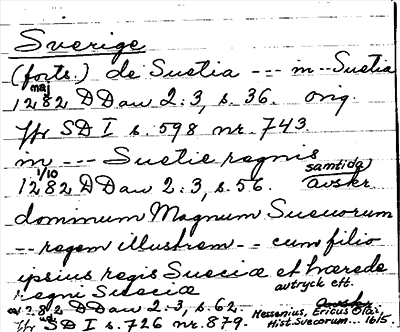 Sverige
(forts.) de Suetia --- in -- Suetia
maj
1282 D Dan 2:3, s. 36. orig.
Jfr SD I s. 598 nr. 743.
in --- Suetie regnis
1/10 samtida
1282 D Dan 2:3, s. 56. avskr
dominum Magnum Sueuorum
-- regem illustrem -- cum filio
ipsius regis Sueciæ et hærede
regni Sueciæ avtryck eft.
1282 D Dan 2:3, s. 62. Messenius, Ericus Olai
Jfr SD I s. 726 nr. 879. Hist. Svecorum... 1615.